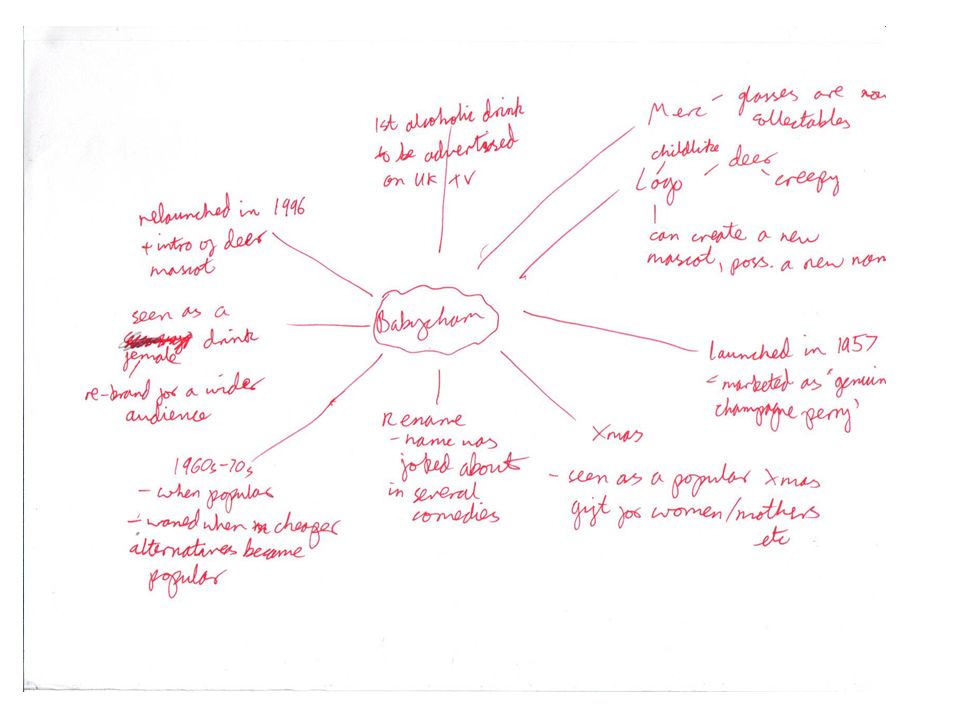 1st alcoholic drink
to be advertised
on UK TV
Merc - glasses are now
collectables
childlike
Logo - deer - creepy
can create a new
mascot, poss. a new nam
relaunched in 1996
+ intro of deer
mascot
Babycham
seen as a
female drink
re-brand for a wider
audience
launched in 1957
- marketed as "genuin
champagne perry'
Rename
- name was
joked about
in several
comedies
Xmas
- seen as a popular Xmas
gift for women/mothers
etc
1960s-70s
- when popular
- waned when cheaper
alternatives became
popular